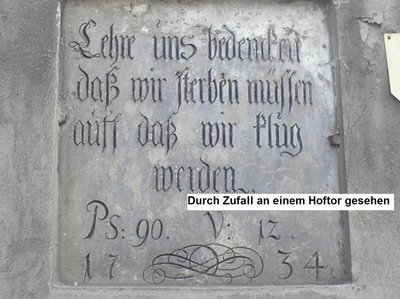 Lehre uns bedencken
daß wir sterben müssen
auff daß wir klug
werden.
Durch Zufall an einem Hoftor gesehen
Ps: 90. V: 12.
17 34.